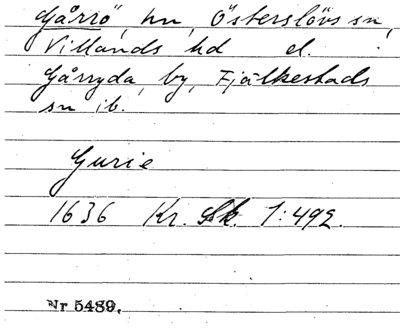 Gårrö, hn, Österslövs sn,
Villands hd el.
Gårryda, by, Fjälkestads
sn ib.
Gurie
1636 Kr. Sk. 1:492.
Nr 5489.